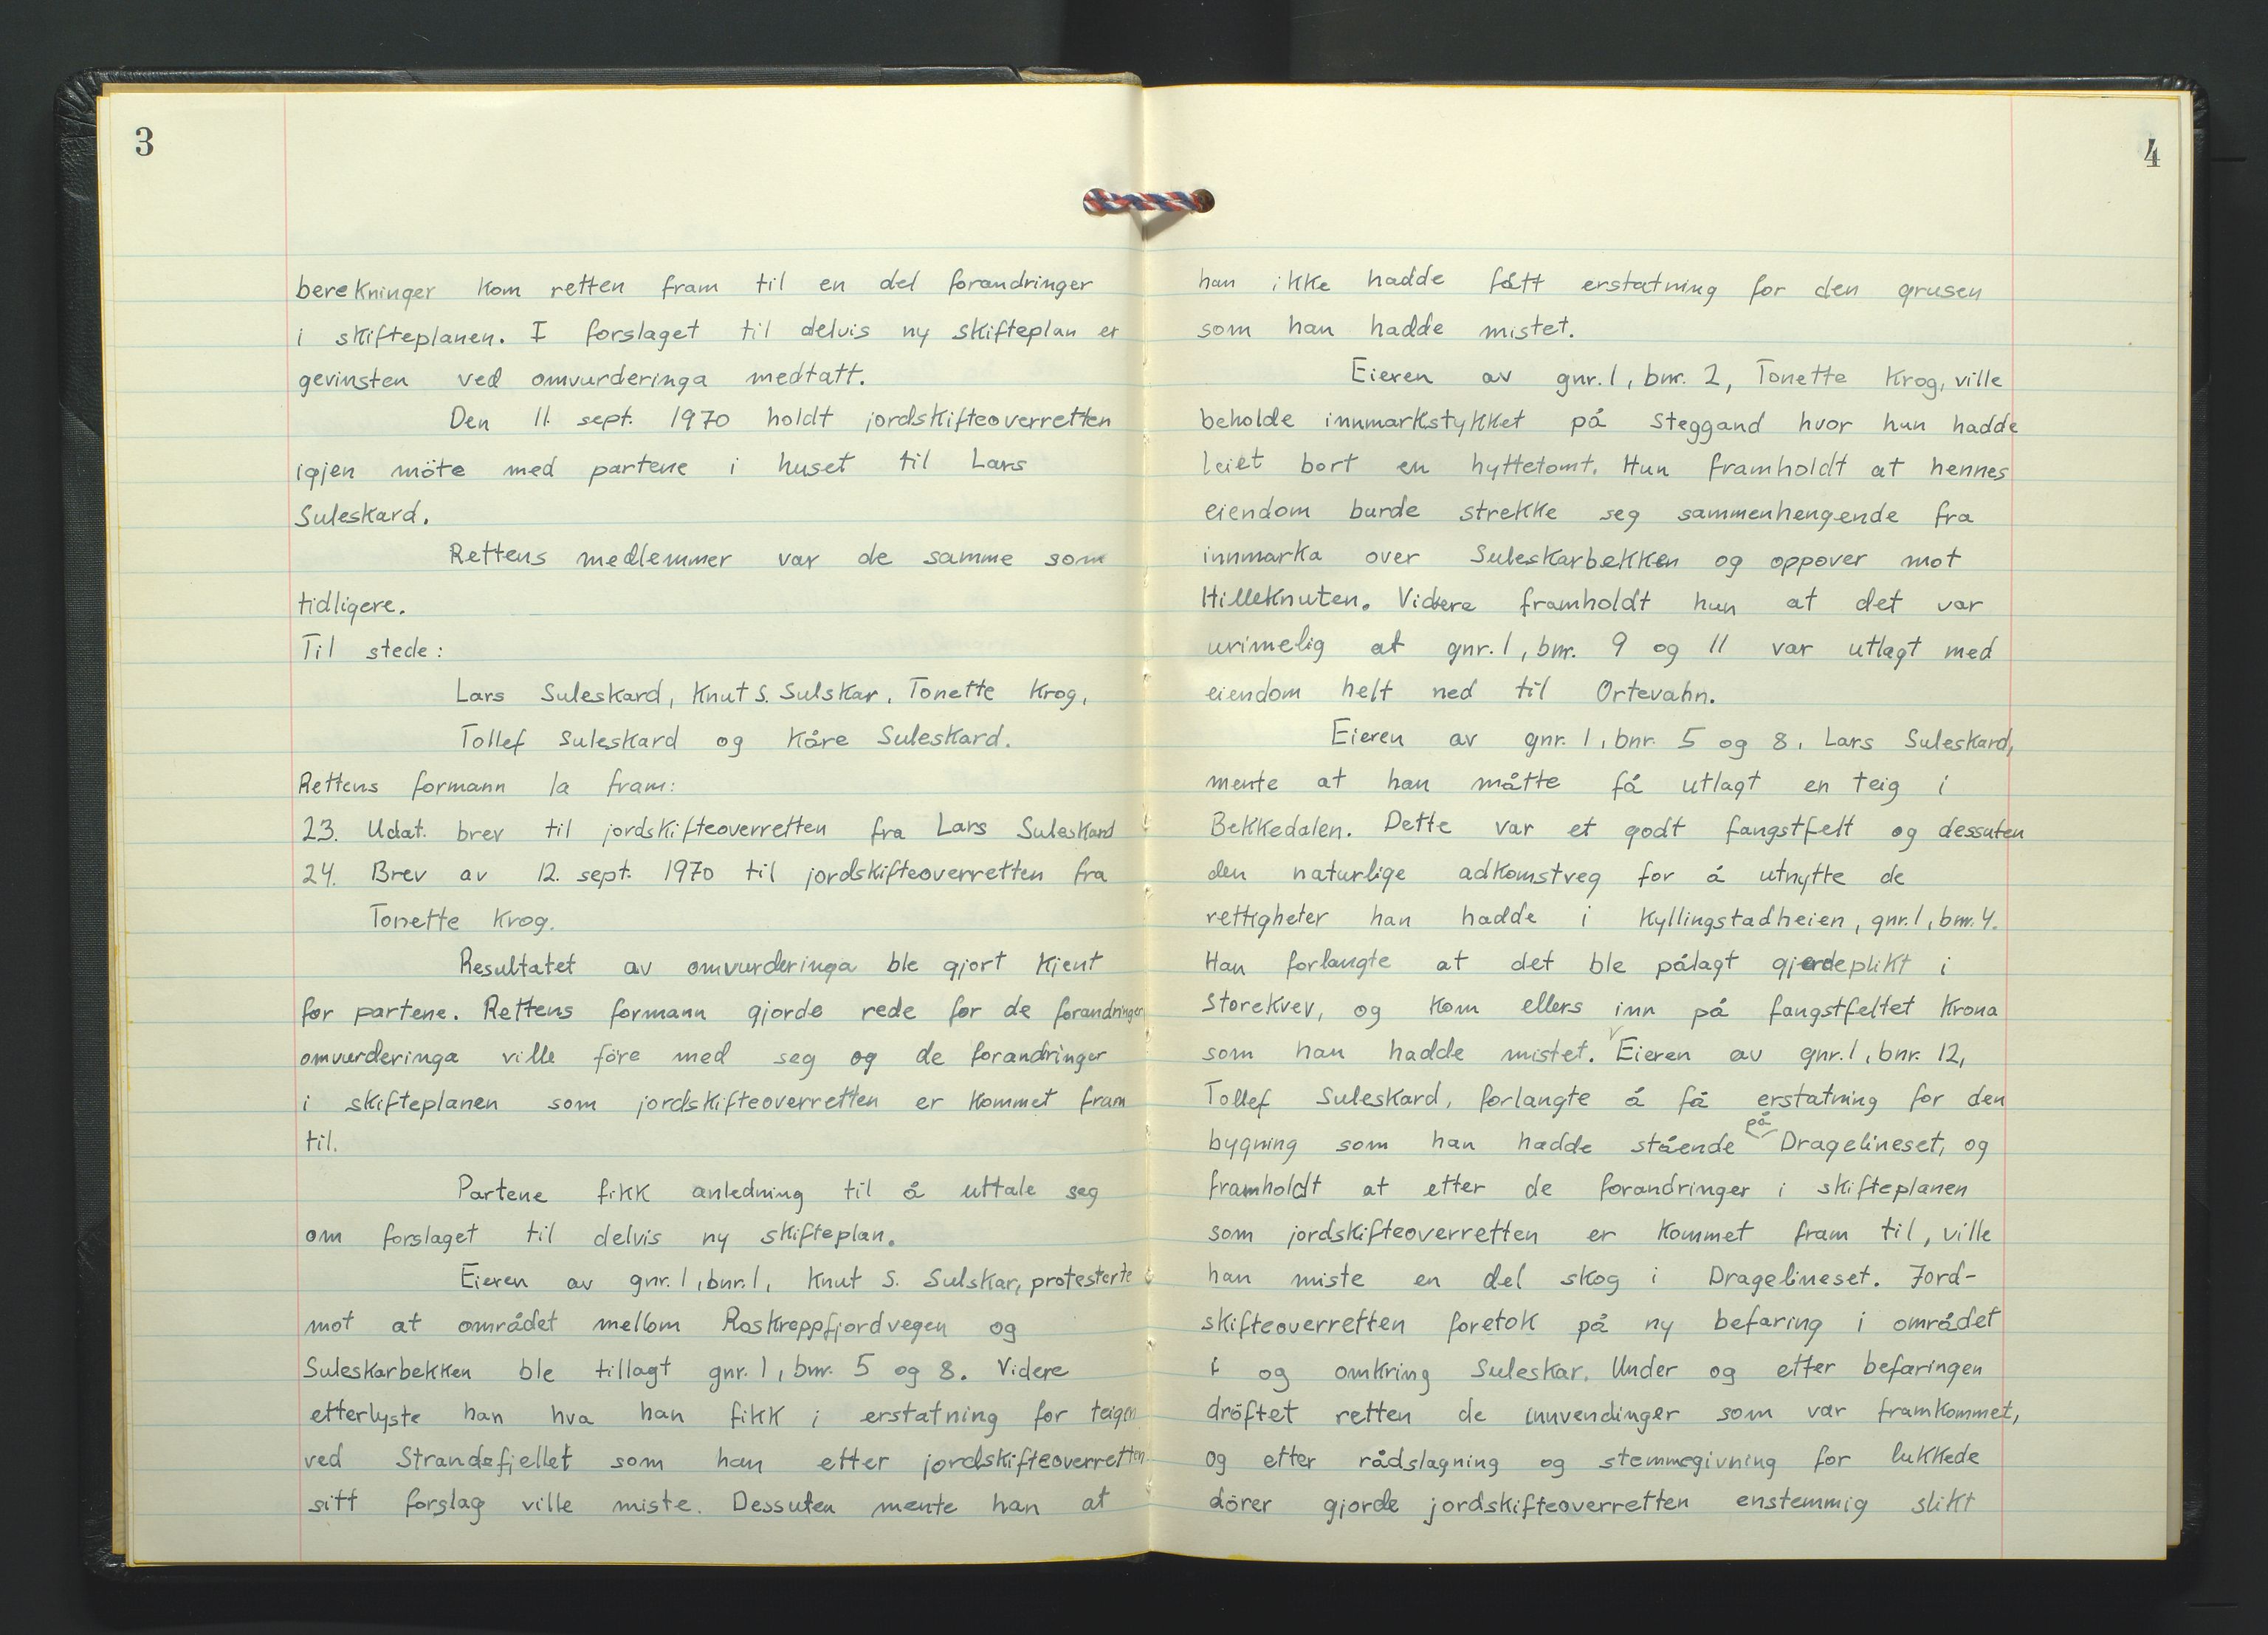 3
berekninger kom retten fram til en del forandringer
i skifteplanen. I forslaget til delvis ny skifteplan er
gevinsten ved omvurderinga medtatt.
Den 11. sept. 1970 holdt jordskifteoverretten
igjen möte med partene i huset til Lars
Suleskard.
Rettens medlemmer var de samme som
tidligere.
Til stede:
Lars Suleskard, Knut S. Sulskar, Tonette Krog,
Tollef Suleskard og Kåre Suleskard.
Rettens formann la fram:
23. Udat. brev til jordskifteoverretten fra Lars Suleskard
24. Brev av 12. sept. 1970 til jordskifteoverretten fra
Tonette Krog.
Resultatet av omvurderinga ble gjort kjent
for partene. Rettens formann gjorde rede for de forandringer
omvurderinga ville före med seg og de forandringer
i skifteplanen som jordskifteoverretten er kommet fram
til.
Partene fikk anledning til å uttale seg
om forslaget til delvis ny skifteplan.
Eieren av gnr. 1, bnr. 1, Knut S. Sulskar, protesterte
mot at området mellom Roskreppfjordvegen og
Suleskarbekken ble tillagt gnr. 1, bnr. 5 og 8. Videre
etterlyste han hva han fikk i erstatning for teigen
ved Strandefjellet som han etter jordskifteoverretten
sitt forslag ville miste. Dessuten mente han at
4
han ikke hadde fått erstatning for den grusen
som han hadde mistet.
Eieren av gnr. 1, bnr. 2, Tonette Krog, ville
beholde innmarkstykket på Steggand hvor hun hadde
leiet bort en hyttetomt. Hun framholdt at hennes
eiendom burde strekke seg sammenhengende fra
innmarka over Suleskarbekken og oppover mot
Hilleknuten. Videre framholdt hun at det var
urimelig at gnr. 1, bnr. 9 og 11 var utlagt med
eiendom helt ned til Ortevahn.
Eieren av gnr. 1, bnr. 5 og 8, Lars Suleskard,
mente at han måtte få utlagt en teig i
Bekkedalen. Dette var et godt fangstfelt og dessuten
den naturlige adkomstveg for å utnytte de
rettigheter han hadde i Kyllingstadheien, gnr. 1, bnr. 4.
Han forlangte at det ble pålagt gjerdeplikt i
Storekvev, og kom ellers inn på fangstfeltet Krona
som han hadde mistet. Eieren av gnr. 1, bnr. 12,
Tollef Suleskard, forlangte å få erstatning for den
bygning som han hadde stående på Dragelineset, og
framholdt at etter de forandringer i skifteplanen
som jordskifteoverretten er kommet fram til, ville
han miste en del skog i Dragelineset. Jord-
skifteoverretten foretok på ny befaring i området
i og omkring Suleskar. Under og etter befaringen
dröftet retten de innvendinger som var framkommet,
og etter rådslagning og stemmegivning for lukkede
dörer gjorde jordskifteoverretten enstemmig slikt